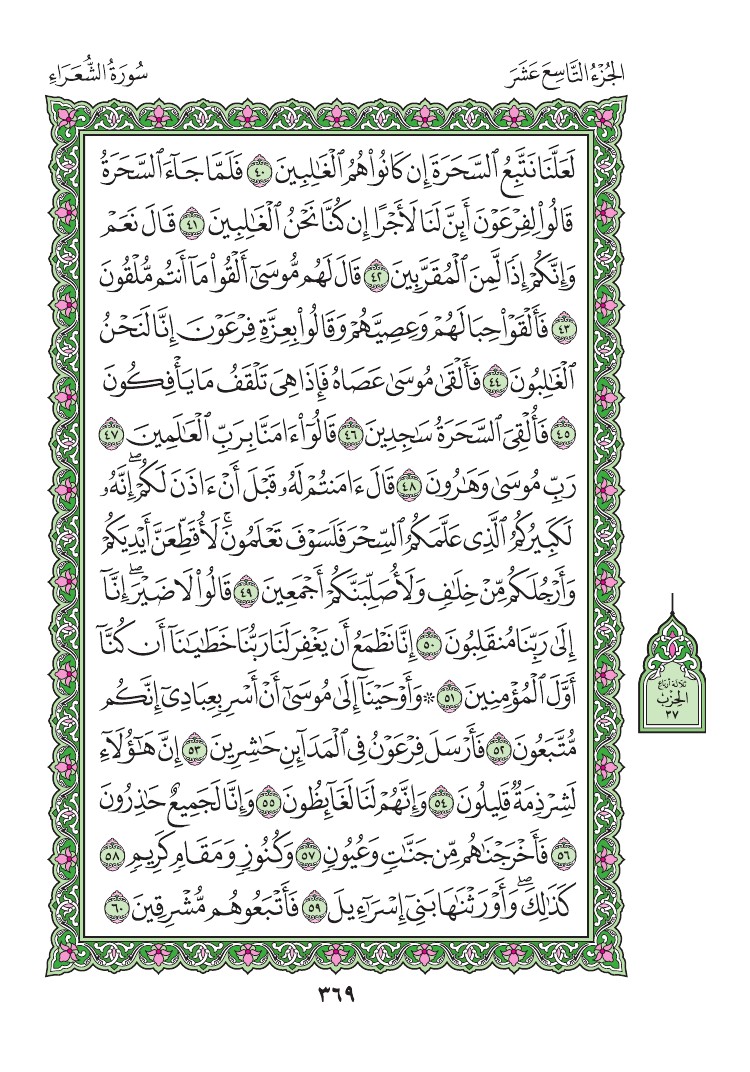 الجُزْءُ التَّاسِعَ عَشَرَ
سُورَةُ الشُّعَرَاءِ
لَعَلَّنَا نَتَّبِعُ ٱلسَّحَرَةَ إِن كَانُوا۟ هُمُ ٱلْغَٰلِبِينَ ٤٠ فَلَمَّا جَآءَ ٱلسَّحَرَةُ
قَالُوا۟ لِفِرْعَوْنَ أَئِنَّ لَنَا لَأَجْرًا إِن كُنَّا نَحْنُ ٱلْغَٰلِبِينَ ٤١ قَالَ نَعَمْ
وَإِنَّكُمْ إِذًا لَّمِنَ ٱلْمُقَرَّبِينَ ٤٢ قَالَ لَهُم مُّوسَىٰٓ أَلْقُوا۟ مَآ أَنتُم مُّلْقُونَ
٤٣ فَأَلْقَوْا۟ حِبَالَهُمْ وَعِصِيَّهُمْ وَقَالُوا۟ بِعِزَّةِ فِرْعَوْنَ إِنَّا لَنَحْنُ
ٱلْغَٰلِبُونَ ٤٤ فَأَلْقَىٰ مُوسَىٰ عَصَاهُ فَإِذَا هِىَ تَلْقَفُ مَا يَأْفِكُونَ
٤٥ فَأُلْقِىَ ٱلسَّحَرَةُ سَٰجِدِينَ ٤٦ قَالُوٓا۟ ءَامَنَّا بِرَبِّ ٱلْعَٰلَمِينَ ٤٧
رَبِّ مُوسَىٰ وَهَٰرُونَ ٤٨ قَالَ ءَامَنتُمْ لَهُۥ قَبْلَ أَنْ ءَاذَنَ لَكُمْ ۖ إِنَّهُۥ
لَكَبِيرُكُمُ ٱلَّذِى عَلَّمَكُمُ ٱلسِّحْرَ فَلَسَوْفَ تَعْلَمُونَ ۚ لَأُقَطِّعَنَّ أَيْدِيَكُمْ
وَأَرْجُلَكُم مِّنْ خِلَٰفٍ وَلَأُصَلِّبَنَّكُمْ أَجْمَعِينَ ٤٩ قَالُوا۟ لَا ضَيْرَ ۖ إِنَّآ
إِلَىٰ رَبِّنَا مُنقَلِبُونَ ٥٠ إِنَّا نَطْمَعُ أَن يَغْفِرَ لَنَا رَبُّنَا خَطَٰيَٰنَآ أَن كُنَّآ
أَوَّلَ ٱلْمُؤْمِنِينَ ٥١ ۞ وَأَوْحَيْنَآ إِلَىٰ مُوسَىٰٓ أَنْ أَسْرِ بِعِبَادِىٓ إِنَّكُم
مُّتَّبَعُونَ ٥٢ فَأَرْسَلَ فِرْعَوْنُ فِى ٱلْمَدَآئِنِ حَٰشِرِينَ ٥٣ إِنَّ هَٰٓؤُلَآءِ
لَشِرْذِمَةٌ قَلِيلُونَ ٥٤ وَإِنَّهُمْ لَنَا لَغَآئِظُونَ ٥٥ وَإِنَّا لَجَمِيعٌ حَٰذِرُونَ
٥٦ فَأَخْرَجْنَٰهُم مِّن جَنَّٰتٍ وَعُيُونٍ ٥٧ وَكُنُوزٍ وَمَقَامٍ كَرِيمٍ ٥٨
كَذَٰلِكَ ۖ وَأَوْرَثْنَٰهَا بَنِىٓ إِسْرَٰٓءِيلَ ٥٩ فَأَتْبَعُوهُم مُّشْرِقِينَ ٦٠
ثلاثة أرباع
الحزب
٣٧
٣٦٩